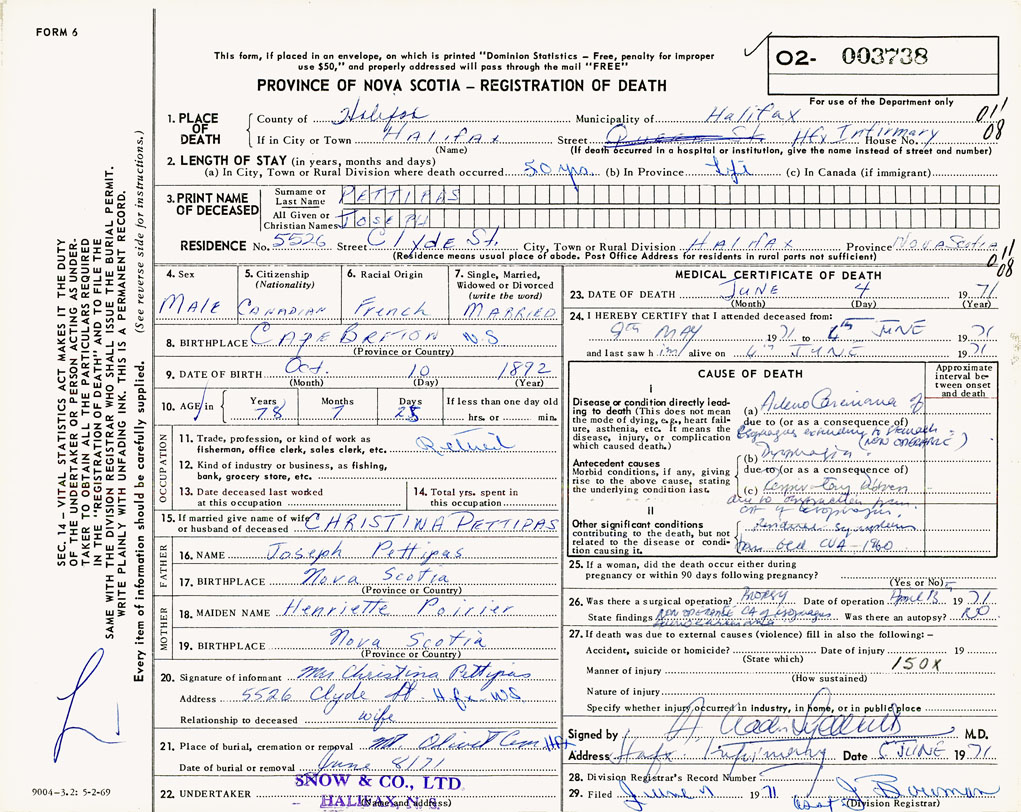 FORM 6
This form, if placed in an envelope, on which is printed "Dominion Statistics – Free, penalty for improper
use $50," and properly addressed will pass through the mail "FREE"
PROVINCE OF NOVA SCOTIA – REGISTRATION OF DEATH
02- 003738
For use of the Department only
1. PLACE OF DEATH
County of Halifax Municipality of Halifax 011
If in City or Town HALIFAX Street Queen St. Hfx Infirmary House No. 08
(Name) (If death occurred in a hospital or institution, give the name instead of street and number)
2. LENGTH OF STAY (in years, months and days)
(a) In City, Town or Rural Division where death occurred 50 yrs. (b) In Province Life (c) In Canada (if immigrant)
3. PRINT NAME OF DECEASED
Surname or Last Name PETTIPAS
All Given or Christian Names JOSEPH
RESIDENCE No. 5526 Street Clyde St. City, Town or Rural Division HALIFAX Province NOVA SCOTIA 011
(Residence means usual place of abode. Post Office Address for residents in rural parts not sufficient) 08
4. Sex MALE
5. Citizenship (Nationality) CANADIAN
6. Racial Origin French
7. Single, Married, Widowed or Divorced (write the word) MARRIED
8. BIRTHPLACE CAPE BRETON N.S
(Province or Country)
9. DATE OF BIRTH Oct. 10 1892
(Month) (Day) (Year)
10. AGE in Years 78 Months 7 Days 25 If less than one day old hrs. or min.
OCCUPATION
11. Trade, profession, or kind of work as fisherman, office clerk, sales clerk, etc. Retired
12. Kind of industry or business, as fishing, bank, grocery store, etc.
13. Date deceased last worked at this occupation
14. Total yrs. spent in this occupation
15. If married give name of wife or husband of deceased CHRISTINA PETTIPAS
FATHER
16. NAME Joseph Pettipas
17. BIRTHPLACE Nova Scotia
(Province or Country)
MOTHER
18. MAIDEN NAME Henriette Poirier
19. BIRTHPLACE Nova Scotia
(Province or Country)
20. Signature of informant Mrs Christina Pettipas
Address 5526 Clyde St. Hfx N.S.
Relationship to deceased wife
21. Place of burial, cremation or removal Mt Olivet Cem Hfx
Date of burial or removal June 8/71
22. UNDERTAKER SNOW & CO., LTD
HALIFAX, N. S.
(Name and Address)
MEDICAL CERTIFICATE OF DEATH
23. DATE OF DEATH JUNE 4 1971
(Month) (Day) (Year)
24. I HEREBY CERTIFY that I attended deceased from:
9th MAY 1971 to 4th JUNE 1971
and last saw him alive on 4th JUNE 1971
CAUSE OF DEATH
Approximate interval between onset and death
I
Disease or condition directly leading to death (This does not mean the mode of dying, e.g., heart failure, asthenia, etc. It means the disease, injury, or complication which caused death.)
(a) Adeno Carcinoma of
due to (or as a consequence of)
Esophagus extending to Stomach
(NON OPERABLE)
(b) Dysphagia
Antecedent causes
Morbid conditions, if any, giving rise to the above cause, stating the underlying condition last.
due to (or as a consequence of)
(c) Respiratory
due to from
CA of Esophagus
II
Other significant conditions contributing to the death, but not related to the disease or condition causing it.
from old CVA - 1960
25. If a woman, did the death occur either during pregnancy or within 90 days following pregnancy?
(Yes or No)
26. Was there a surgical operation? Biopsy Date of operation April 13 1971
State findings NON OPERABLE CA of Esophagus Was there an autopsy? NO
adenocarcinoma
27. If death was due to external causes (violence) fill in also the following: –
Accident, suicide or homicide? Date of injury 19
(State which)
Manner of injury 150X
(How sustained)
Nature of injury
Specify whether injury occurred in industry, in home, or in public place
Signed by M.D.
Address Hfx Infirmary Date 6 JUNE 1971
28. Division Registrar's Record Number
29. Filed June 1971 J Bowman
(Division Registrar)
SEC. 14 – VITAL STATISTICS ACT MAKES IT THE DUTY
OF THE UNDERTAKER OR PERSON ACTING AS UNDER-
TAKER TO OBTAIN ALL THE PARTICULARS REQUIRED
IN THE "REGISTRATION OF DEATH" AND TO FILE THE
SAME WITH THE DIVISION REGISTRAR WHO SHALL ISSUE THE BURIAL PERMIT.
WRITE PLAINLY WITH UNFADING INK. THIS IS A PERMANENT RECORD.
Every item of information should be carefully supplied. (See reverse side for instructions.)
9004-3.2: 5-2-69